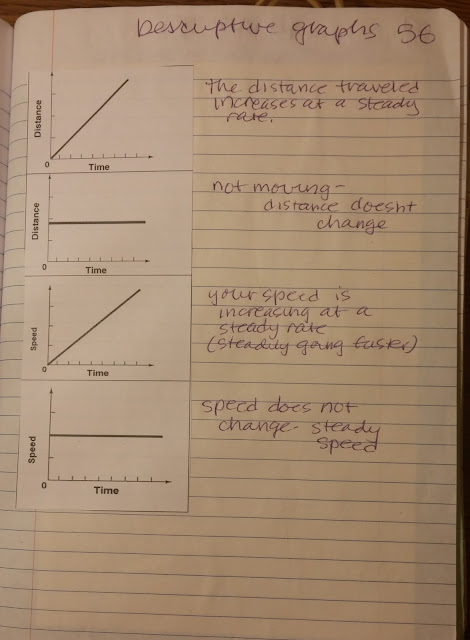 Descriptive graphs 56
Distance
0
Time
the distance traveled
increases at a steady
rate.
Distance
0
Time
not moving-
distance doesnt
change
Speed
0
Time
your speed is
increasing at a
steady rate
(steadily going faster)
Speed
0
Time
speed does not
change- steady
speed